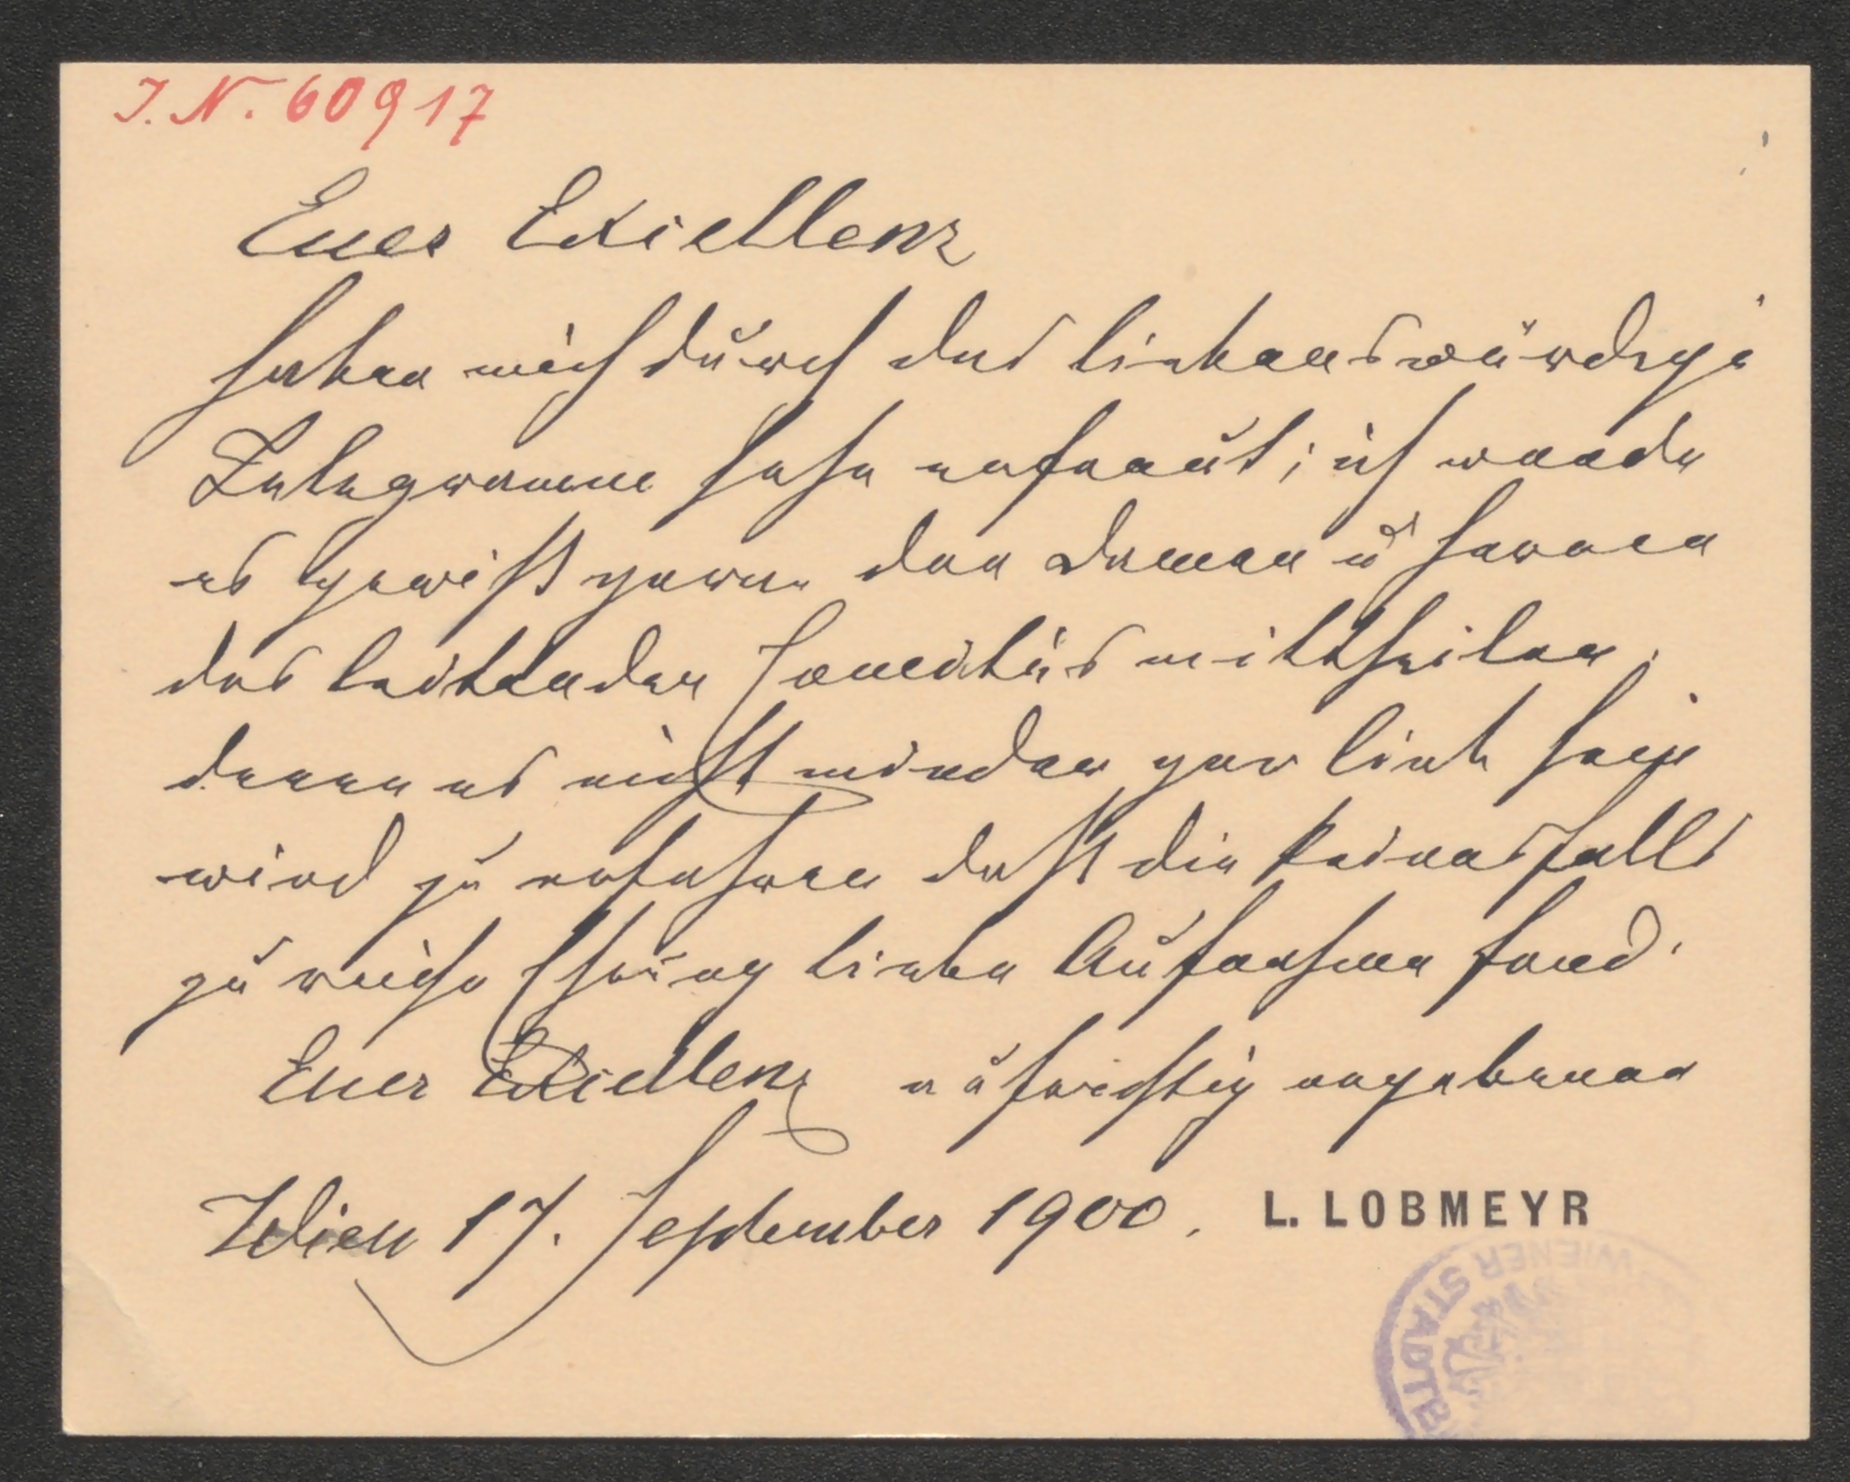 I. N. 60917
Euer Excellenz
haben mich durch das liebenswürdige
Telegramm sehr erfreut; ich werde
es gewiß gerne den Damen u Herren
des leitenden Comités mittheilen,
denen es nicht minder gar lieb sein
wird zu erfahren daß die keinesfalls
zu reiche Ehrung liebe Aufnahme fand.
Euer Excellenz aufrichtig ergebener
Wien 17. September 1900. L. LOBMEYR
WIENER STADTB